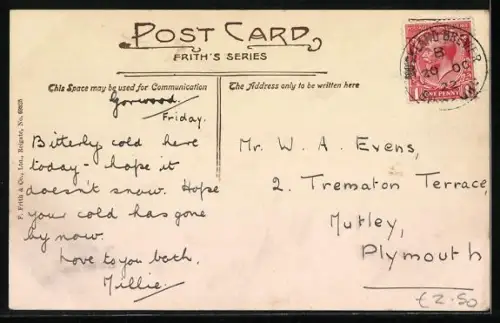 POST CARD
FRITH'S SERIES
This Space may be used for Communication
The Address only to be written here
Gorwood.
Friday.
Bitterly cold here
today - hope it
doesn't snow. Hope
your cold has gone
by now.
Love to you both.
Millie.
Mr. W. A. Evens,
2. Trematon Terrace,
Mutley,
Plymouth
F. Frith & Co., Ltd., Reigate, No.
BUCKLAND BREWER
B
20 OC
22
ONE PENNY
£2.50